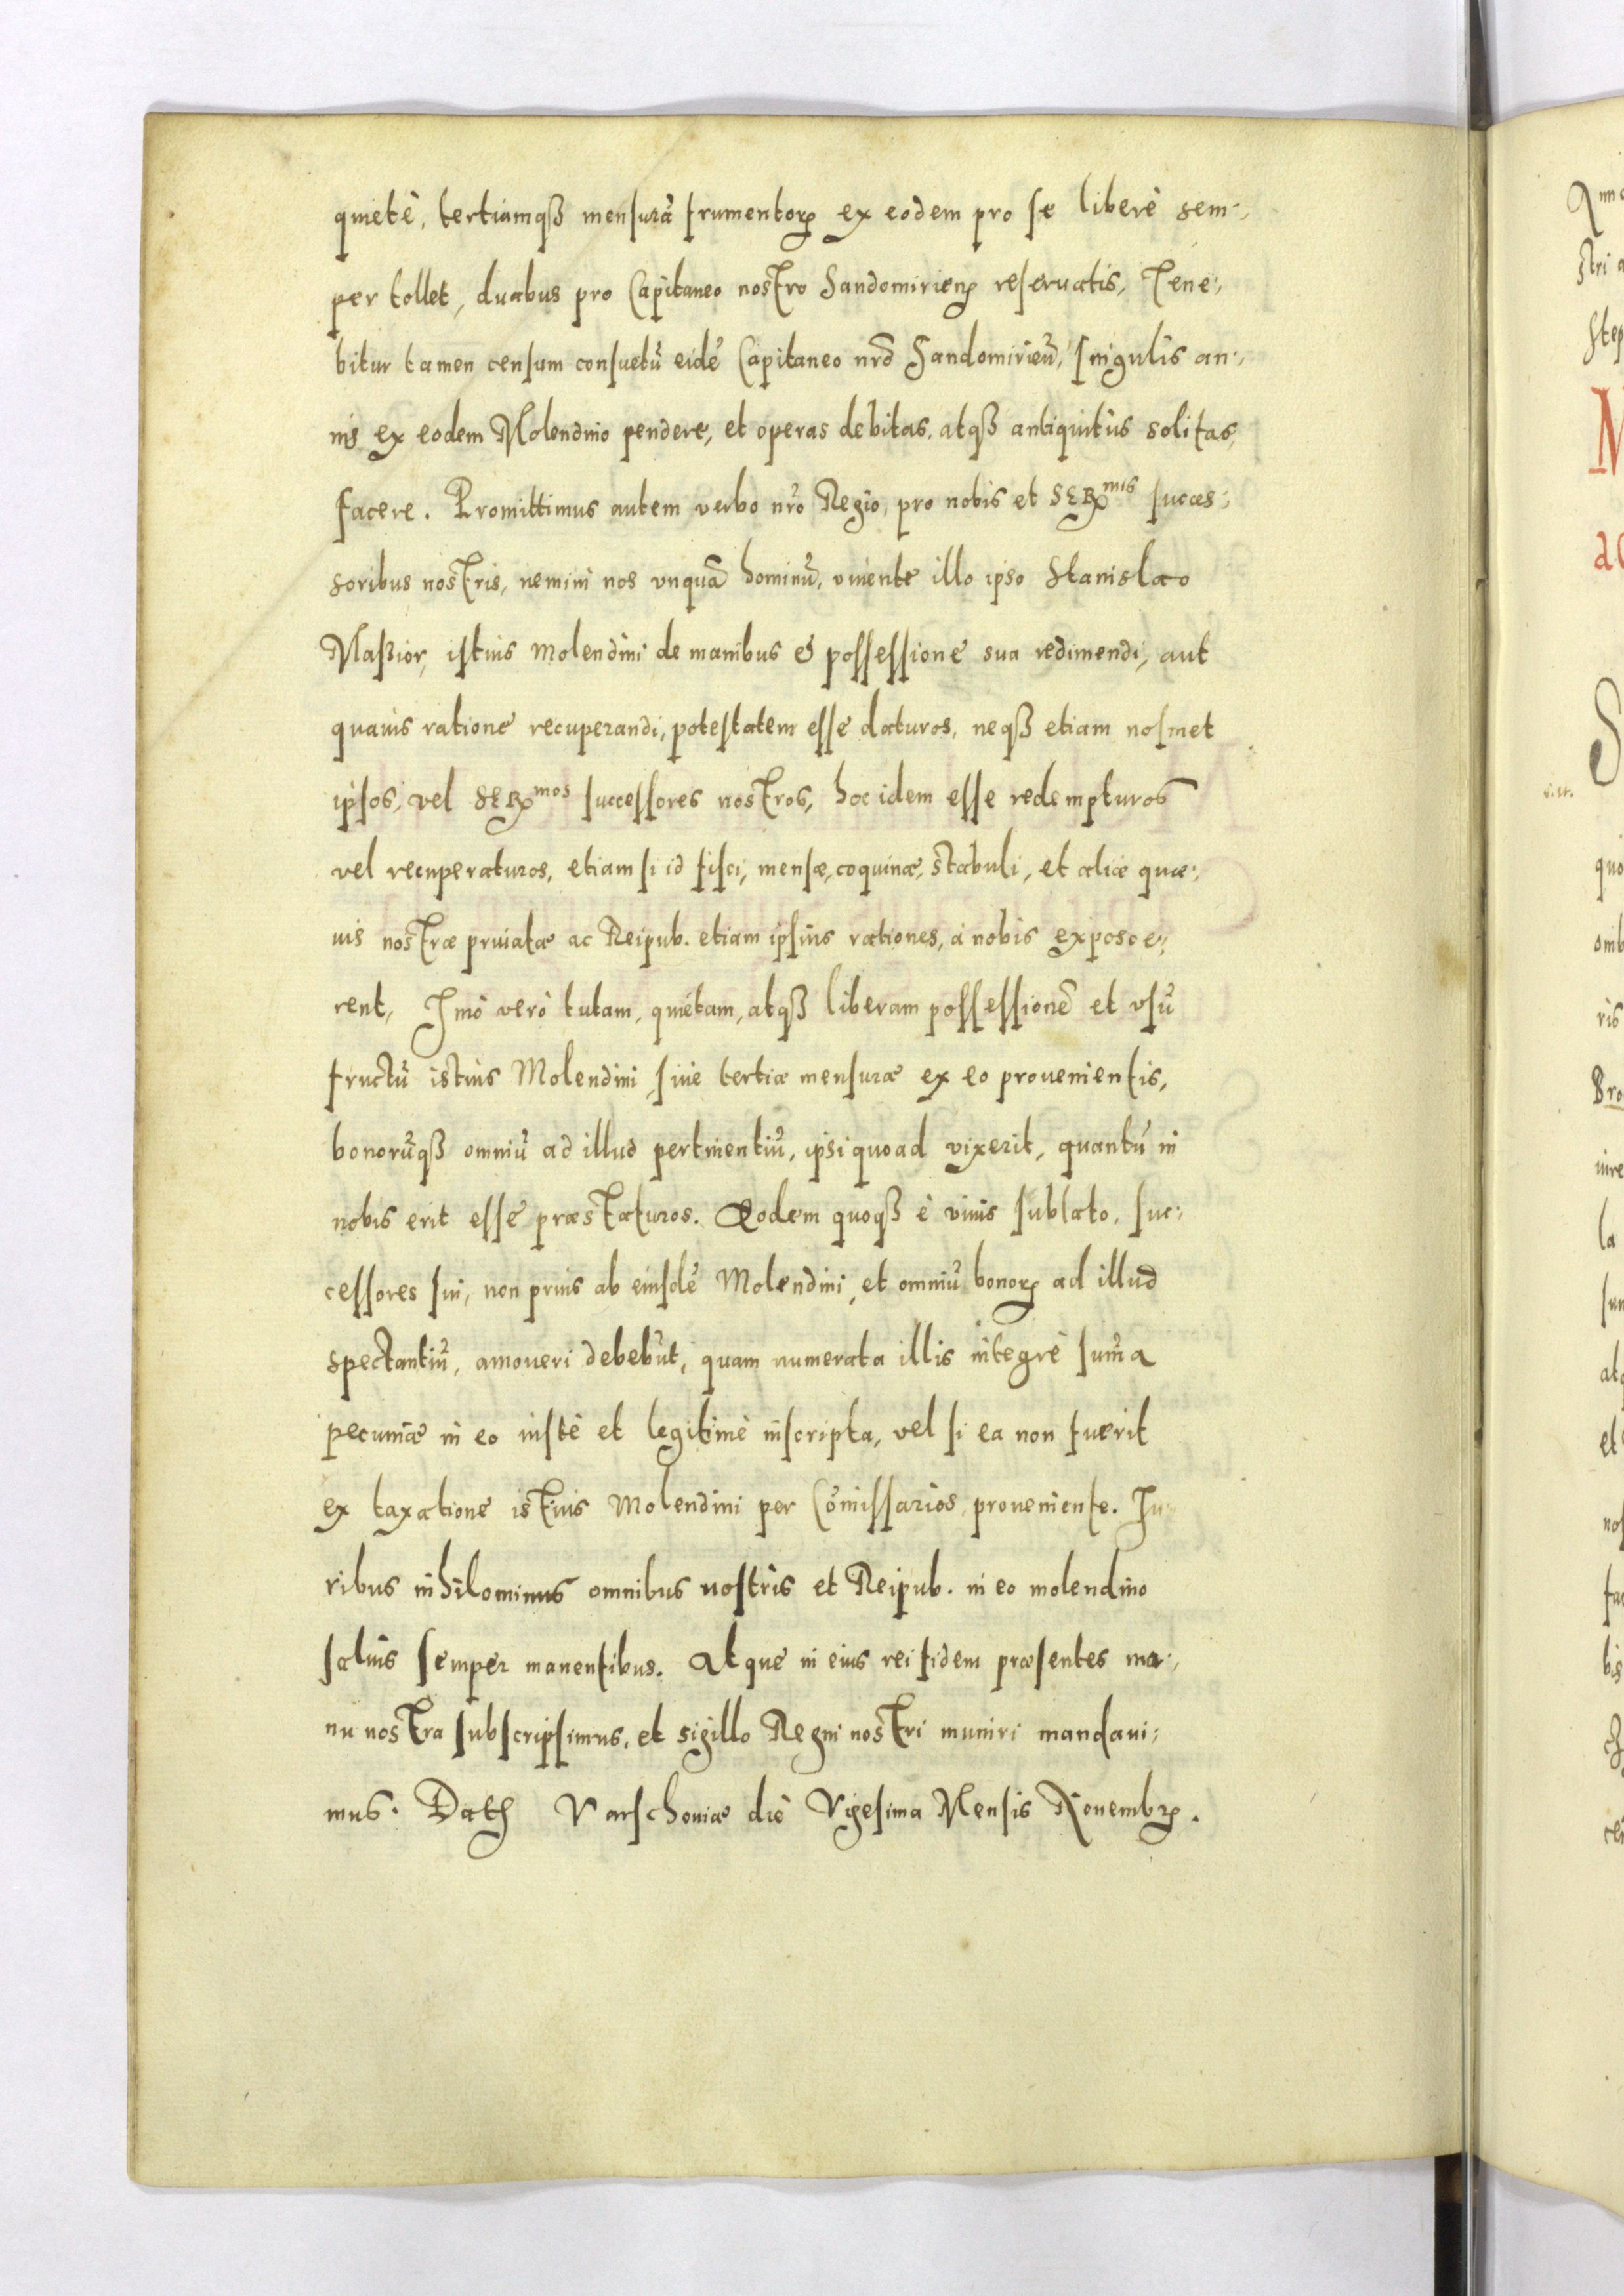 quietè, tertiamqꝫ mensurā frumentoꝝ ex eodem pro se liberè sem-
per tollet, duabus pro Capitaneo nostro Sandomirieñ reseruatis, Tene-
bitur tamen censum consuetū eidē Capitaneo nrō Sandomirieñ, singulis an-
nis ex eodem Molendino pendere, et operas debitas, atqꝫ antiquitùs solitas,
facere. Promittimus autem verbo nr̄o Regio, pro nobis et SERmis succes-
soribus nostris, nemini nos vnquā hominū, viuente illo ipso Stanislao
Maßior, istius Molendini de manibus & possessione sua redimendi, aut
quauis ratione recuperandi, potestatem esse daturos, neqꝫ etiam nosmet
ipsos, vel SERmos successores nostros, hoc idem esse redempturos
vel recuperaturos, etiam si id fisci, mensæ, coquinæ, stabuli, et aliæ quæ-
uis nostræ priuatæ ac Reipub. etiam ipsius rationes, à nobis exposce-
rent, Imò verò tutam, quietam, atqꝫ liberam possessionē et vsū
fructū istius Molendini siue tertiæ mensuræ ex eo prouenientis,
bonorūqꝫ omniū ad illud pertinentiū, ipsi quoad vixerit, quantū in
nobis erit esse præstaturos. Eodem quoqꝫ è viuis sublato, suc-
cessores sui, non prius ab eiusdē Molendini, et omniū bonoꝝ ad illud
spectantiū, amoueri debebūt, quam numerata illis integrè sum̄a
pecuniæ in eo iustè et legitimè inscripta, vel si ea non fuerit
ex taxatione istius Molendini per Cōmissarios, proueniente. Iu-
ribus nihilominus omnibus nostris et Reipub. in eo molendino
saluis semper manentibus. Atque in eius rei fidem præsentes ma-
nu nostra subscripsimus, et sigillo Regni nostri muniri mandaui-
mus. Datꝭ Varschouiæ die Vigesima Mensis Nouembꝝ.